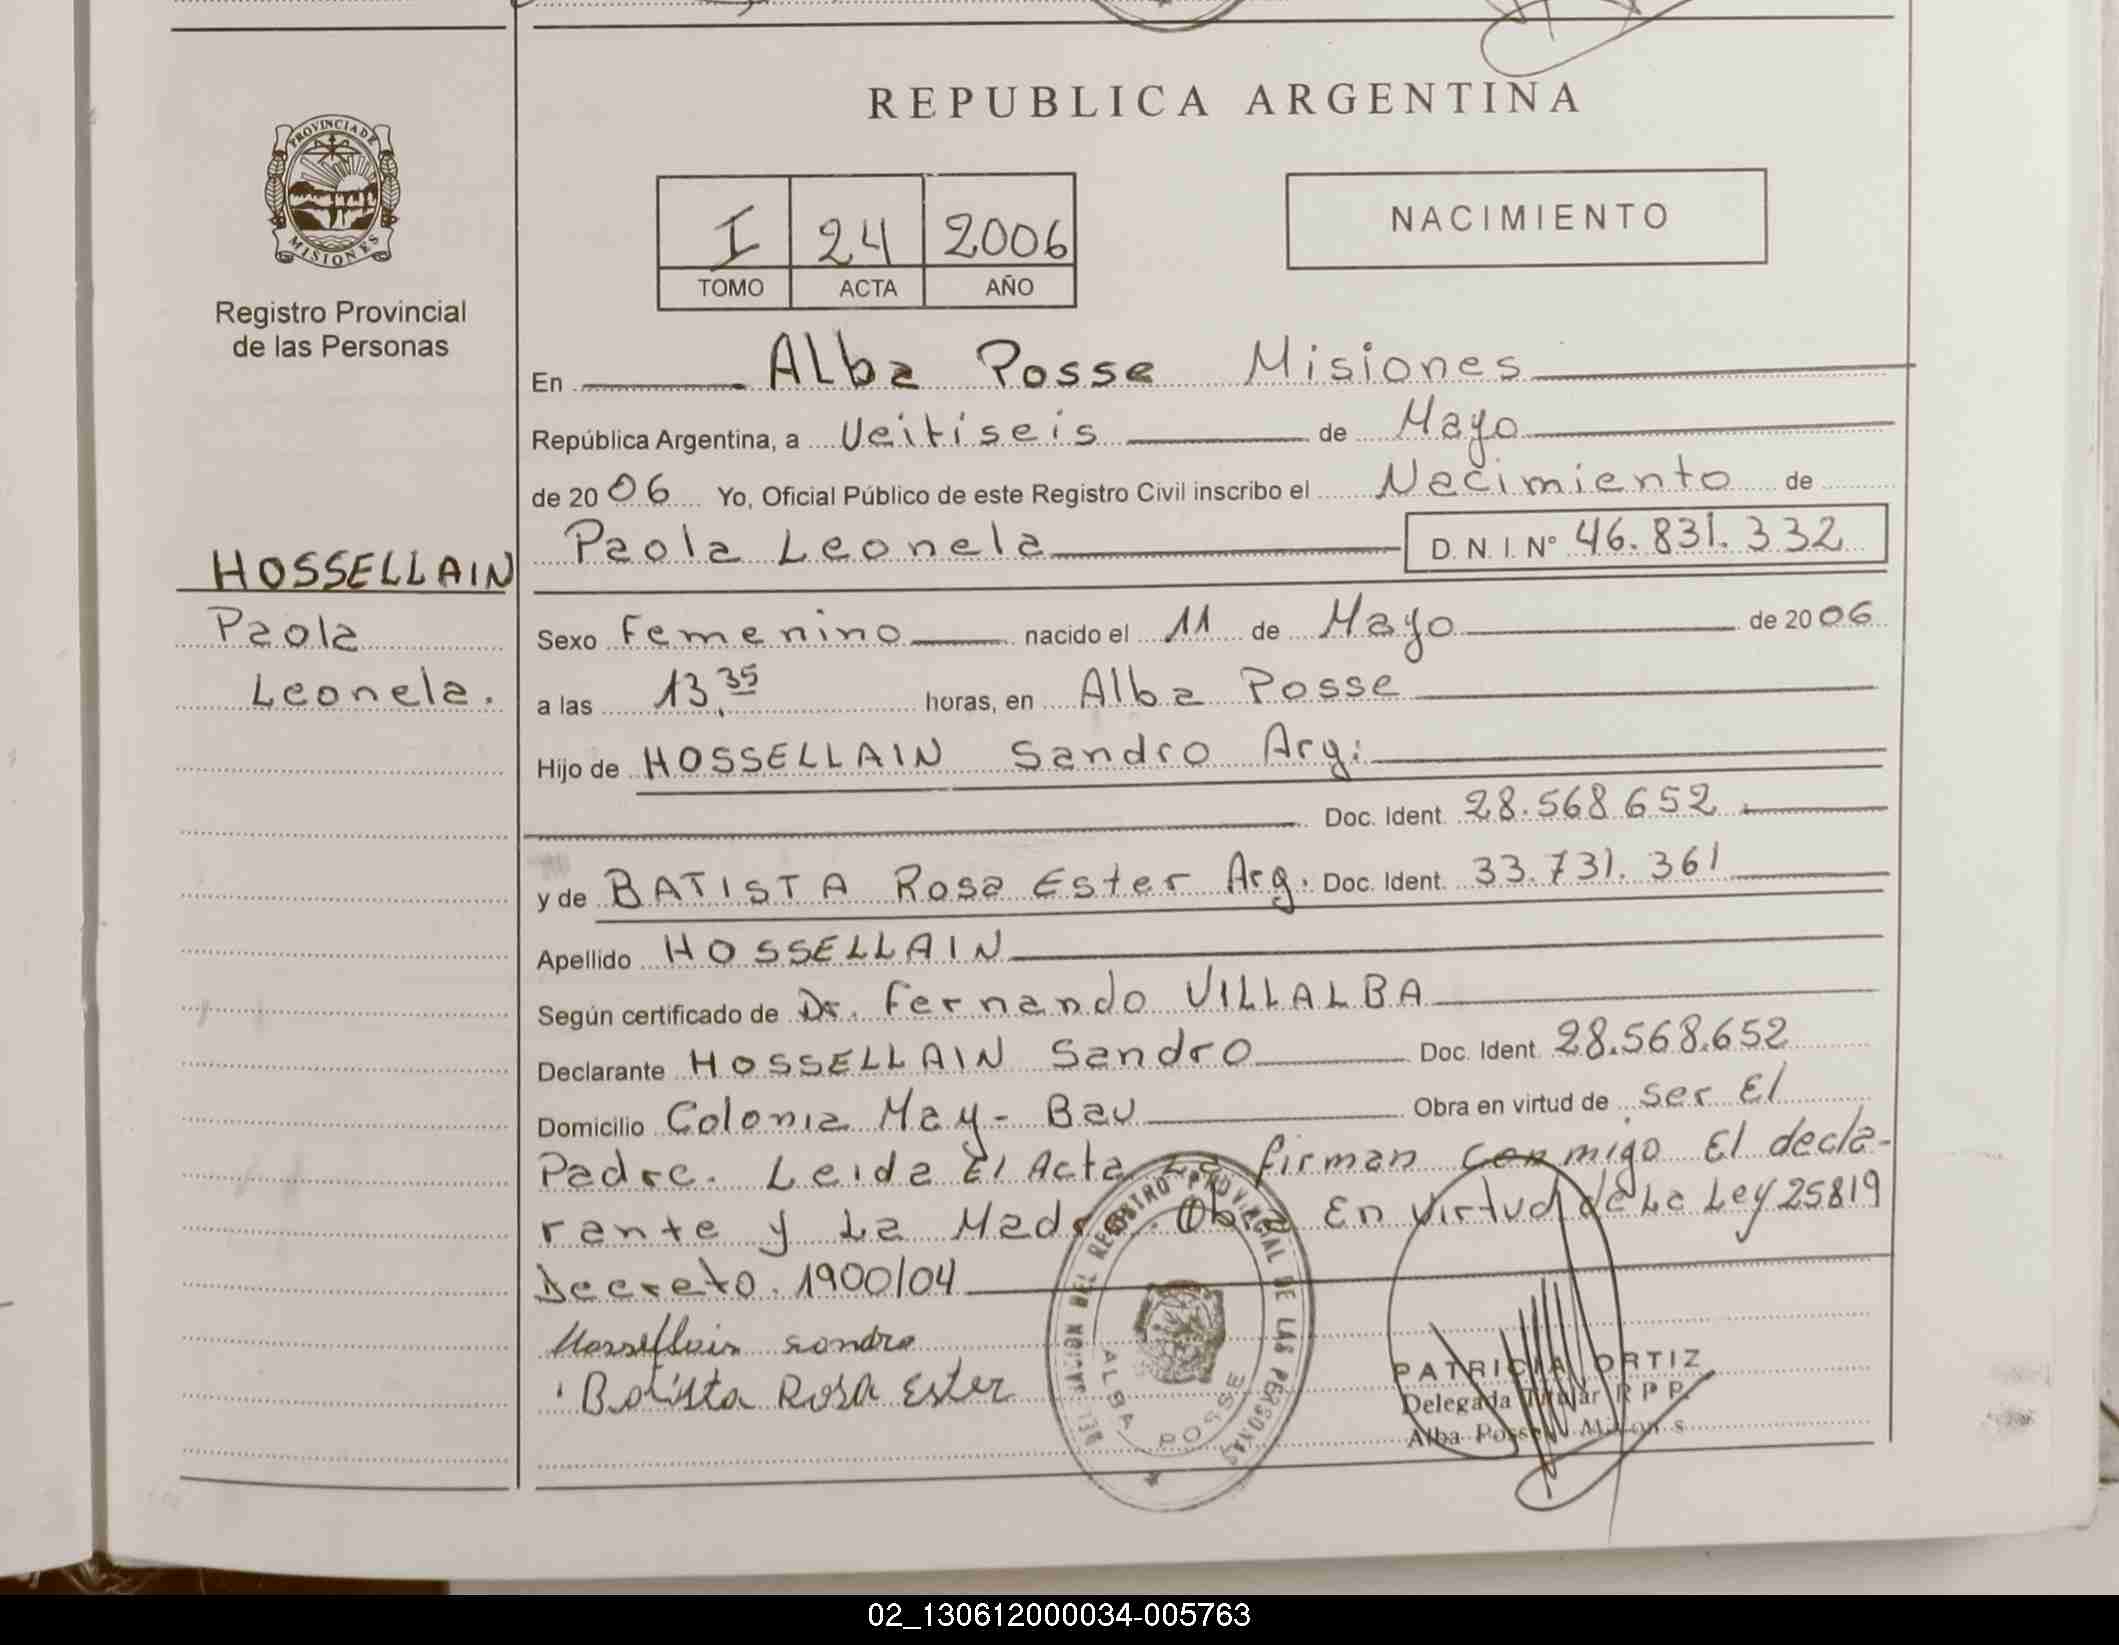 REPUBLICA ARGENTINA
PROVINCIA DE MISIONES
Registro Provincial
de las Personas
I 24 2006
TOMO ACTA AÑO
NACIMIENTO
En Alba Posse Misiones
República Argentina, a Veitiseis de Mayo
de 2006 Yo, Oficial Público de este Registro Civil inscribo el Nacimiento de
Paola Leonela D.N.I. N° 46.831.332
HOSSELLAIN
Paola
Leonela.
Sexo Femenino nacido el 11 de Mayo de 2006
a las 13,35 horas, en Alba Posse
Hijo de HOSSELLAIN Sandro Arg:
Doc. Ident. 28.568.652.
y de BATISTA Rosa Ester Arg. Doc. Ident. 33.731.361
Apellido HOSSELLAIN
Según certificado de Dr. Fernando VILLALBA
Declarante HOSSELLAIN Sandro Doc. Ident. 28.568.652
Domicilio Colonia May-Bau Obra en virtud de ser El
Padre. Leida El Acta La firman conmigo El decla-
rante y La Madre. Obra En virtud de La Ley 25819
Decreto. 1900/04
Hossellain sandro
Batista Rosa Ester
DEL REGISTRO PROVINCIAL DE LAS PERSONAS
ALBA POSSE
PATRICIA ORTIZ
Delegada Titular R P P
Alba Posse Misiones
02_130612000034-005763